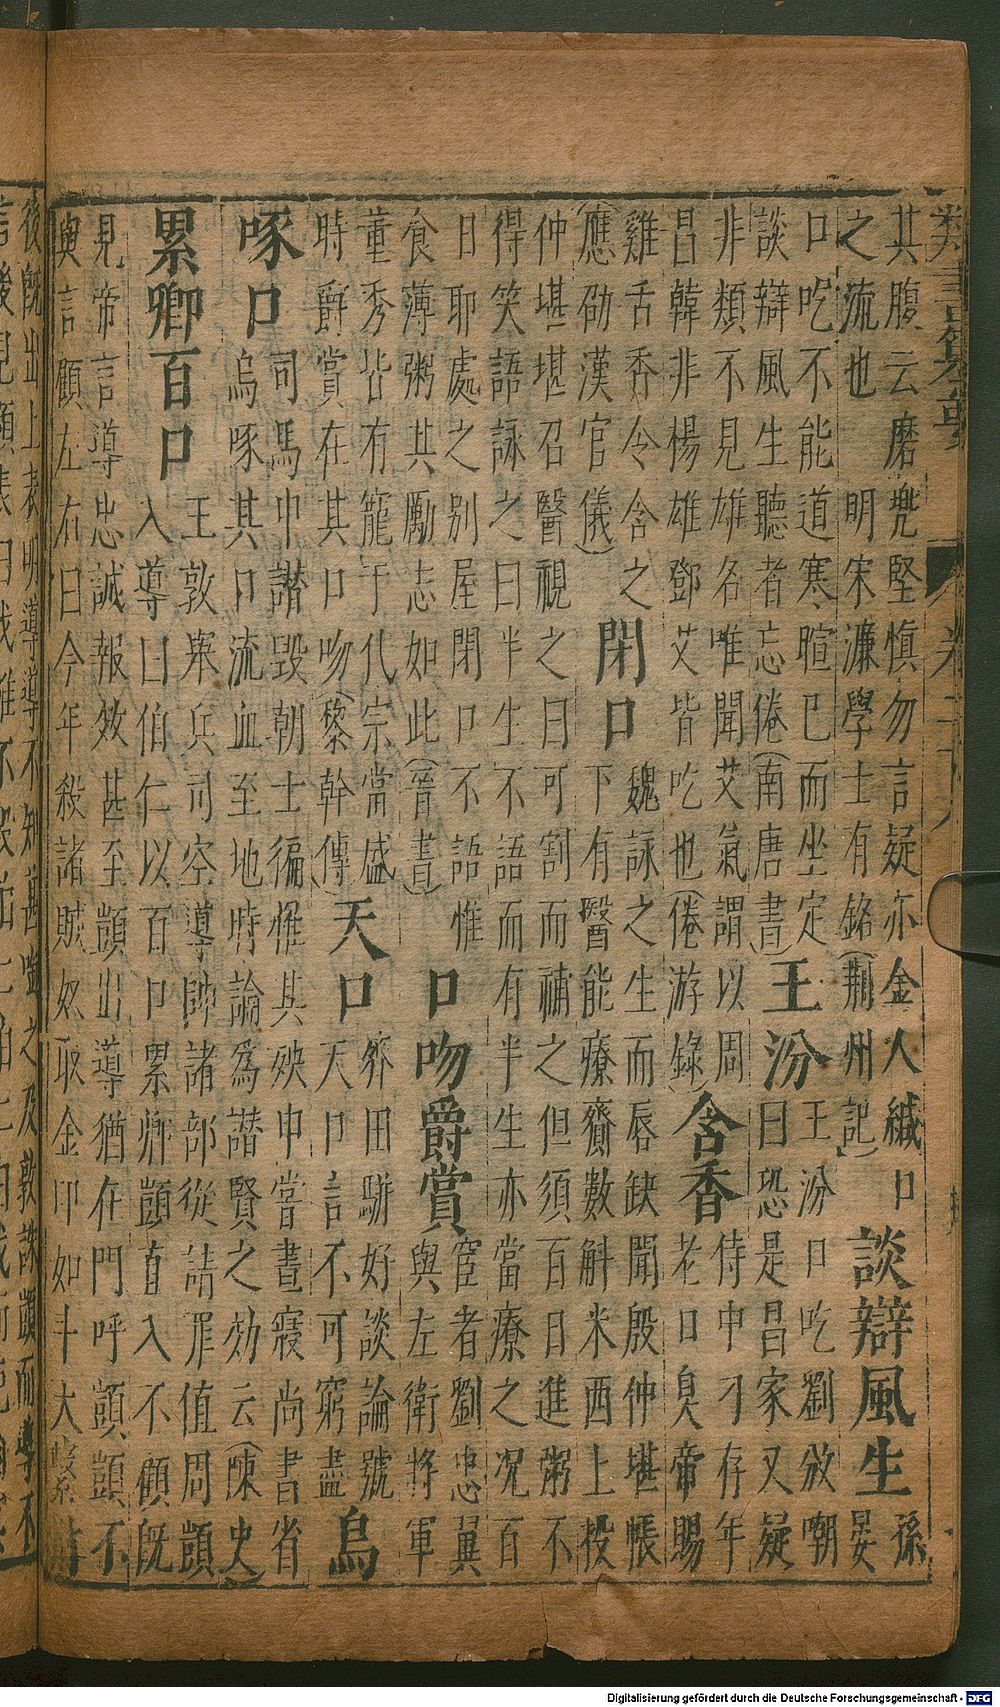 類書纂要
其腹云磨兜堅慎勿言疑亦金人緘口 談辯風生 孫
之流也 明宋濂學士有銘(荊州記) 晏
口吃不能道寒暄已而坐定 王汾 王汾口吃劉攽嘲
談辯風生聽者忘倦(南唐書) 曰恐是昌家又疑
非類不見雄名唯聞艾氣謂以周 含香 侍中刁存年
昌韓非楊雄鄧艾皆吃也(倦游錄) 老口臭帝賜
雞舌香令含之 閉口 魏詠之生而唇缺聞殷仲堪帳
(應劭漢官儀) 下有醫能療齎數斛米西上投
仲堪堪召醫視之曰可割而補之但須百日進粥不
得笑語詠之曰半生不語而有半生亦當療之況百
日耶處之別屋閉口不語惟 口吻爵賞 宦者劉忠翼
食薄粥其勵志如此(晉書) 與左衛將軍
董秀皆有寵于代宗當盛 天口 齊田駢好談論號
時爵賞在其口吻(黎幹傳) 天口言不可窮盡 烏
啄口 司馬申譖毀朝士徧惟其殃申嘗晝寢尚書省
烏啄其口流血至地時論為譖賢之効云(陳史)
累卿百口 王敦舉兵司空導帥諸部從請罪值周顗
入導曰伯仁以百口累卿顗直入不顧既
見帝言導忠誠報效甚至顗出導猶在門呼顗顗不
與言顧左右曰今年殺諸賊奴取金印如斗大繫肘
後既出上表明導導不知甚啣之及敦誅顗而導不
Digitalisierung gefördert durch die Deutsche Forschungsgemeinschaft - DFG